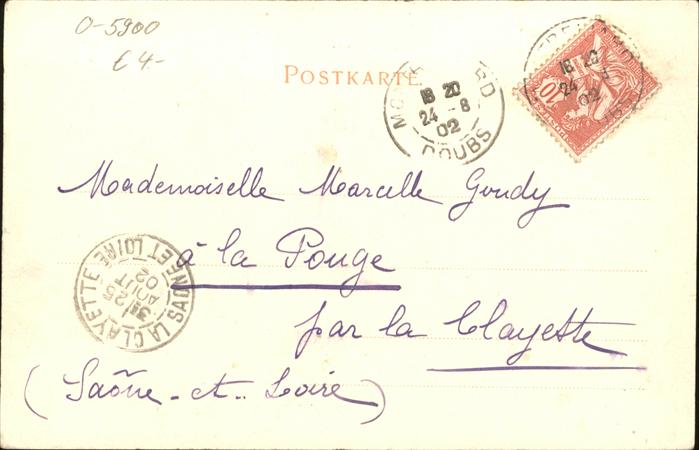 0-5900
£ 4-
POSTKARTE
18 20
24 - 8
02
DOUBS
18 20
24 8
02
10
Mademoiselle Marcelle Goudy
à la Fouge
par la Clayette
(Saône-et-Loire)
LA CLAYETTE SAONE ET LOIRE
25
AOUT
02